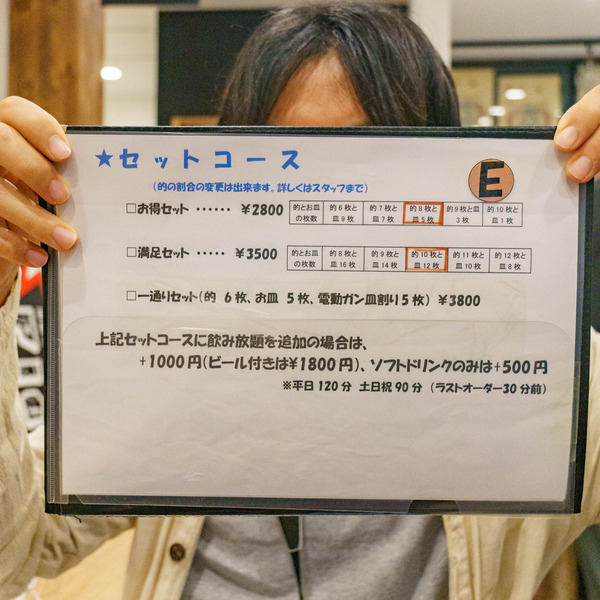 ★セットコース
(的の割合の変更は出来ます。詳しくはスタッフまで)
E
□お得セット ‥‥‥ ¥2800
的とお皿の枚数 的6枚と皿9枚 的7枚と皿7枚 的8枚と皿5枚 的9枚と皿3枚 的10枚と皿1枚
□満足セット ‥‥‥ ¥3500
的とお皿の枚数 的8枚と皿16枚 的9枚と皿14枚 的10枚と皿12枚 的11枚と皿10枚 的12枚と皿8枚
□一通りセット(的 6枚、お皿 5枚、電動ガン皿割り5枚) ¥3800
上記セットコースに飲み放題を追加の場合は、
+1000円(ビール付きは¥1800円)、ソフトドリンクのみは+500円
※平日120分 土日祝90分 (ラストオーダー30分前)